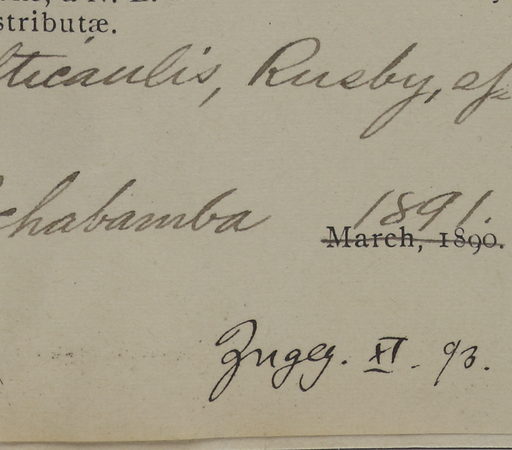 stributæ.
lticaulis, Rusby, sp
chabamba 1891.
March, 1890.
Zugeg. XI. 93.